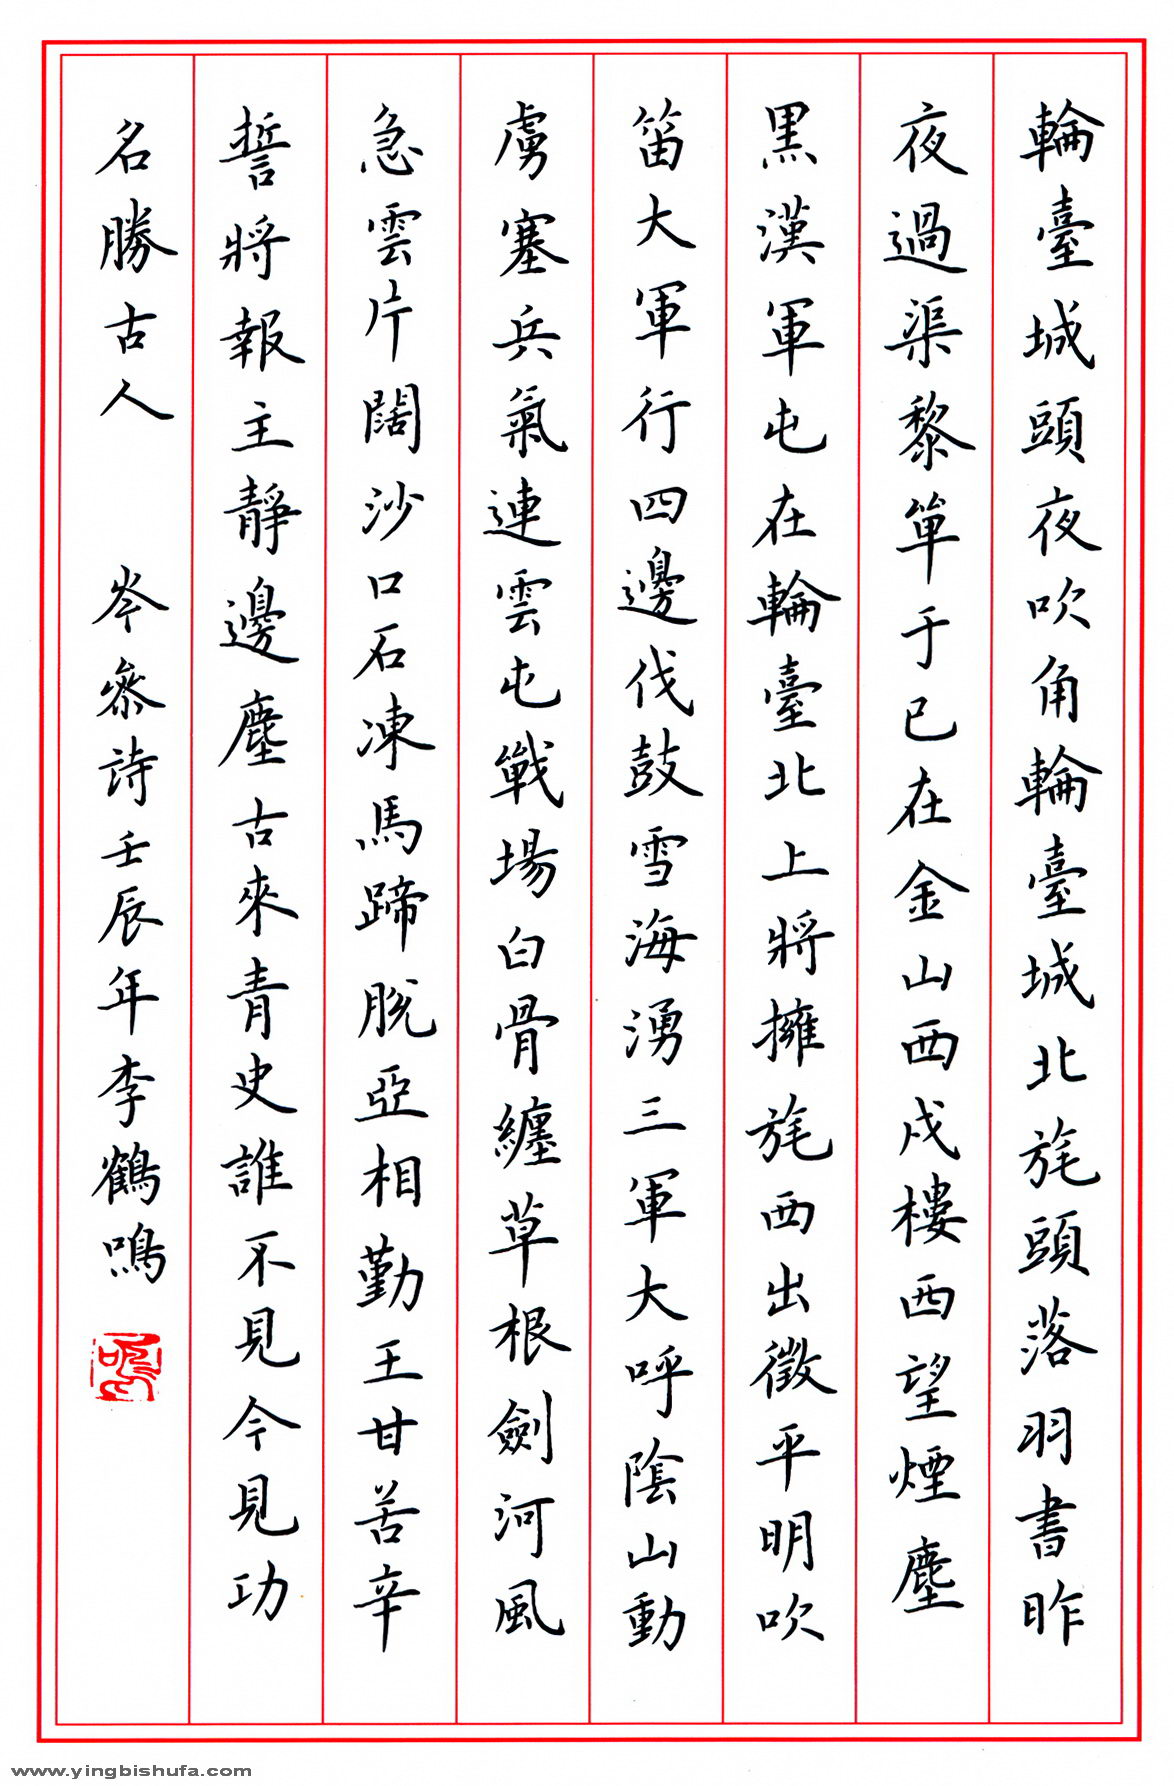 輪臺城頭夜吹角輪臺城北旄頭落羽書昨
夜過渠黎單于已在金山西戍樓西望煙塵
黑漢軍屯在輪臺北上將擁旄西出徵平明吹
笛大軍行四邊伐鼓雪海湧三軍大呼陰山動
虜塞兵氣連雲屯戰場白骨纏草根劍河風
急雲片闊沙口石凍馬蹄脫亞相勤王甘苦辛
誓將報主靜邊塵古來青史誰不見今見功
名勝古人 岑參詩壬辰年李鶴鳴
www.yingbishufa.com